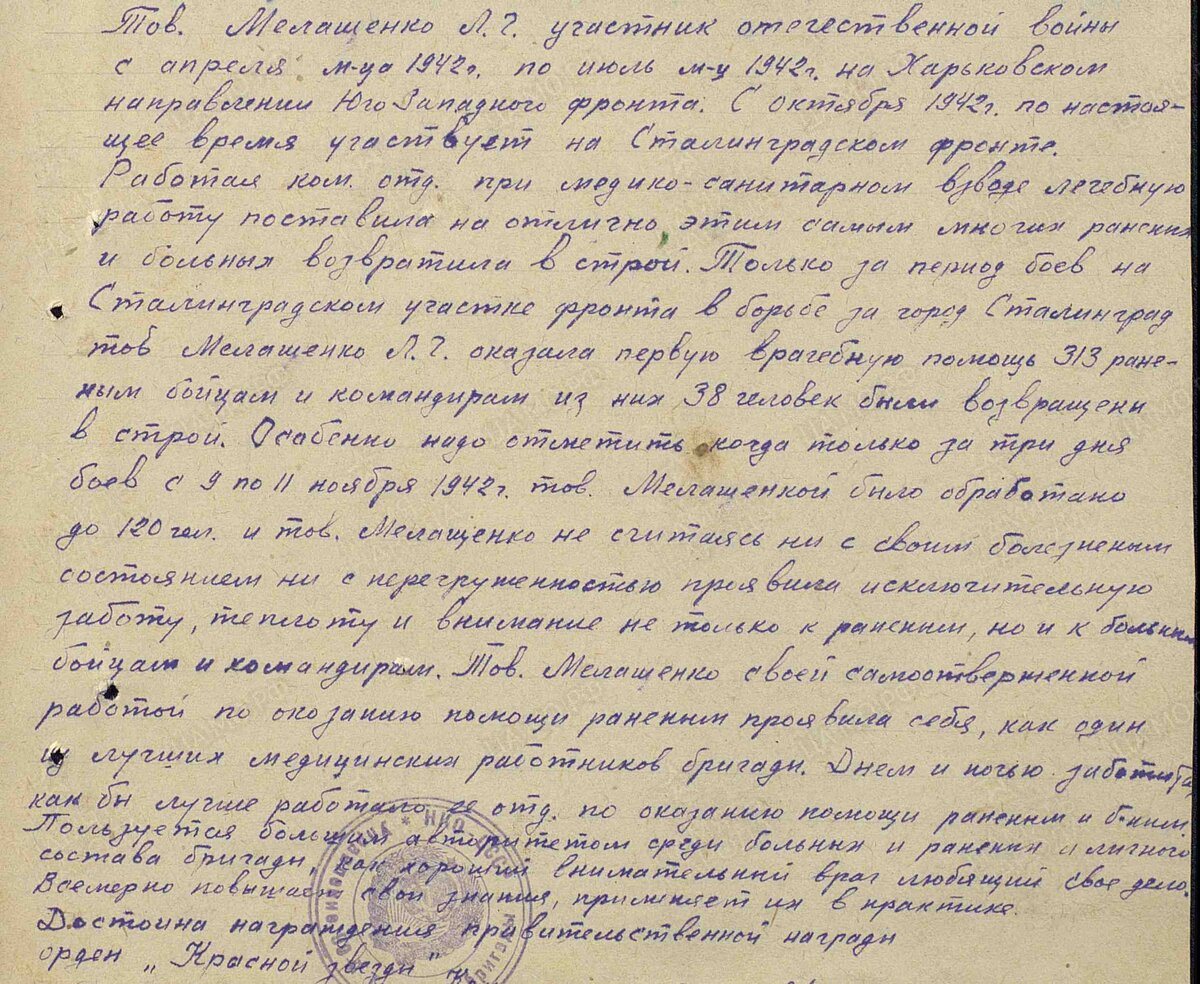 Тов. Мелащенко Л.Г. участник отечественной войны
с апреля м-ца 1942г. по июль м-ц 1942г. на Харьковском
направлении Юго Западного фронта. С октября 1942г. по настоя-
щее время участвует на Сталинградском фронте.
Работая ком. отд. при медико-санитарном взводе лечебную
работу поставила на отлично этим самым многих раненых
и больных возвратила в строй. Только за период боев на
Сталинградском участке фронта в борьбе за город Сталинград
тов Мелащенко Л.Г. оказала первую врачебную помощь 313 ране-
ным бойцам и командирам из них 38 человек были возвращены
в строй. Особенно надо отметить когда только за три дня
боев с 9 по 11 ноября 1942г. тов. Мелащенкой было обработано
до 120 чел. и тов. Мелащенко не считаясь ни с своим болезненым
состоянием ни с перегруженностью проявила исключительную
заботу, теплоту и внимание не только к раненым, но и к больным
бойцам и командирам. Тов. Мелащенко своей самоотверженной
работой по оказанию помощи раненым проявила себя, как один
из лучших медицинских работников бригады. Днем и ночью заботится
как бы лучше работало ее отд. по оказанию помощи раненым и б-ным
Пользуется большим авторитетом среди больных и раненых и личного
состава бригады, как хороший внимательный врач любящий свое дело.
Всемерно повышает свои знания, применяет их в практике.
Достойна награждения правительственной награды
орден „Красной звезды"